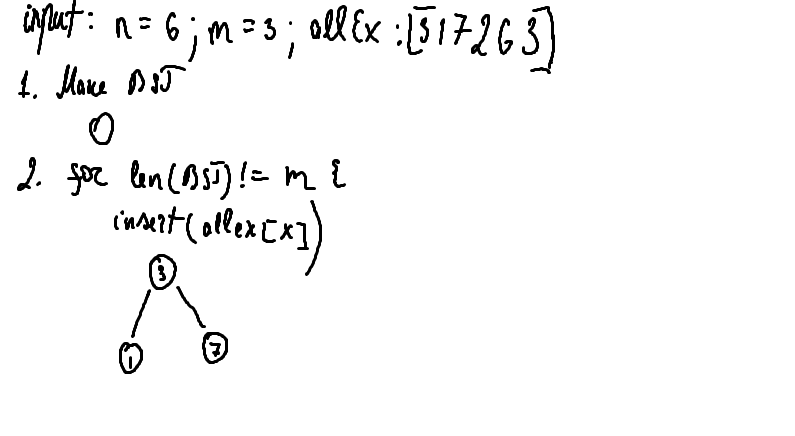 input: n = 6; m = 3; allEx: [317263]
1. Make BST
2. for len(BST) != m {
insert(allex[x])
3
1 7